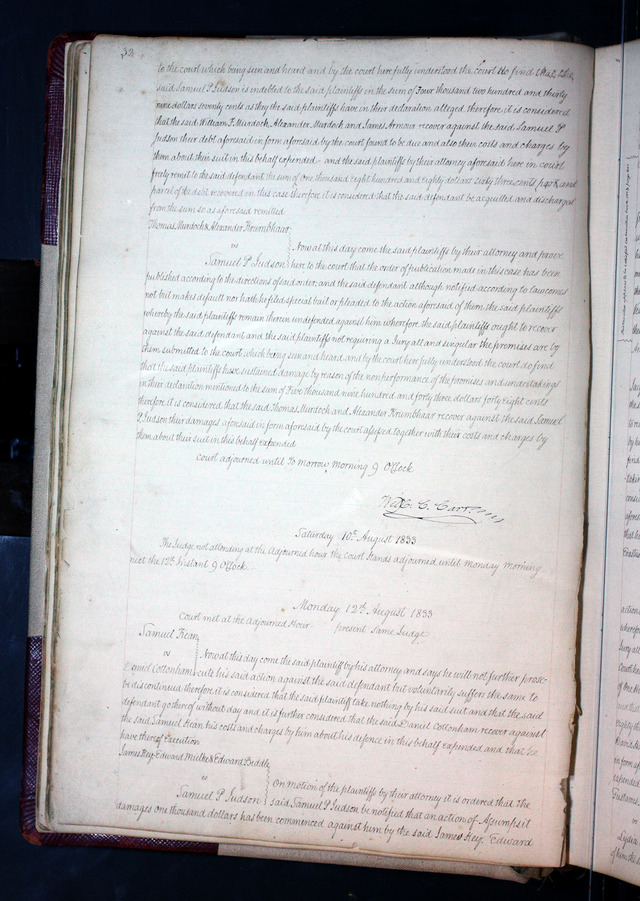 32
to the court which being seen and heard and by the court here fully understood the court do find that the
said Samuel P. Judson is indebted to the said plaintiffs in the sum of Four thousand two hundred and thirty
nine dollars seventy cents as they the said plaintiffs have in their declaration alleged therefore it is considered
that the said William F. Murdock, Alexander Murdock and James Armour recover against the said Samuel P
Judson their debt aforesaid in form aforesaid by the court found to be due and also their costs and charges by
them about their suit in this behalf expended - and the said plaintiffs by their attorney aforesaid here in court
freely remit to the said defendant the sum of one thousand Eight hundred and eighty dollars sixty three cents and
parcel of the debt recovered in this case therefore it is considered that the said defendant be acquitted and discharged
from the sum so as aforesaid remitted
Thomas Murdock & Alexander Krumbhaar
vs
Samuel P. Judson
Now at this day come the said plaintiffs by their attorney and prove
here to the court that the order of publication made in this case has been
published according to the directions of said order; and the said defendant although notified according to law comes
not but makes default nor hath he filed special bail or pleaded to the action aforesaid of them the said plaintiffs
whereby the said plaintiffs remain therein undefended against him wherefore the said plaintiffs ought to recover
against the said defendant and the said plaintiffs not requiring a Jury all and singular the premises are by
them submitted to the court which being seen and heard and by the court here fully understood the court do find
that the said plaintiffs have sustained damage by reason of the non performance of the promises and undertakings
in their declaration mentioned to the sum of Five thousand nine hundred and forty three dollars forty eight cents
therefore it is considered that the said Thomas Murdock and Alexander Krumbhaar recover against the said Samuel
P Judson their damages aforesaid in form aforesaid by the court assessed together with their costs and charges by
them about their suit in this behalf expended
Court adjourned until To morrow morning 9 OClock
C. Carr
Saturday 10th August 1833
The Judge not attending at the Adjourned hour the Court Stands adjourned until monday morning
next the 12th Instant 9 OClock
Monday 12th August 1833
Court met at the Adjourned Hour present same Judge
Samuel Kean
vs
Daniel Cottonham
Now at this day come the said plaintiff by his attorney and says he will not further prose-
cute his said action against the said defendant but voluntarily suffers the same to
be discontinued therefore it is considered that the said plaintiff take nothing by his said suit and that the said
defendant go thereof without day and it is further considered that the said Daniel Cottonham recover against
the said Samuel Kean his costs and charges by him about his defence in this behalf expended and that he
have thereof Execution
James Key, Edward & Edward Biddle
vs
Samuel P Judson
On motion of the plaintiffs by their attorney it is ordered that the
said Samuel P Judson be notified that an action of Assumpsit
damages one thousand dollars has been commenced against him by the said James Key, Edward